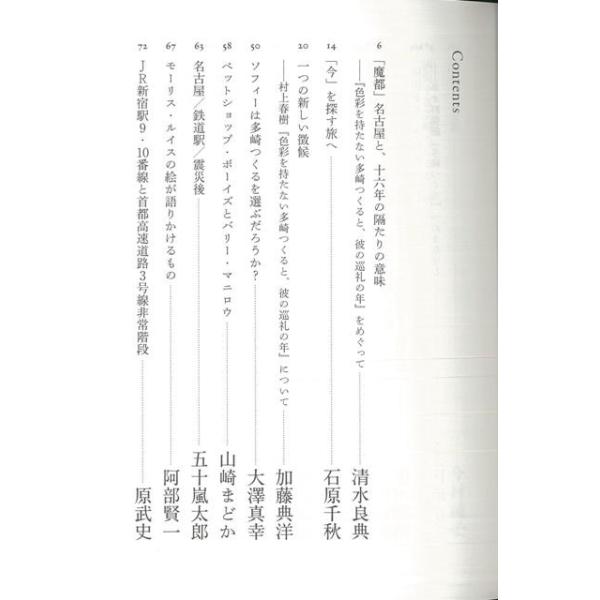 Contents
6 「魔都」名古屋と、十六年の隔たりの意味
——『色彩を持たない多崎つくると、彼の巡礼の年』をめぐって 清水良典
14 「今」を探す旅へ 石原千秋
20 一つの新しい徴候
——村上春樹『色彩を持たない多崎つくると、彼の巡礼の年』について 加藤典洋
50 ソフィーは多崎つくるを選ぶだろうか? 大澤真幸
58 ペットショップ・ボーイズとバリー・マニロウ 山崎まどか
63 名古屋/鉄道駅/震災後 五十嵐太郎
67 モーリス・ルイスの絵が語りかけるもの 阿部賢一
72 JR新宿駅9・10番線と首都高速道路3号線非常階段 原武史